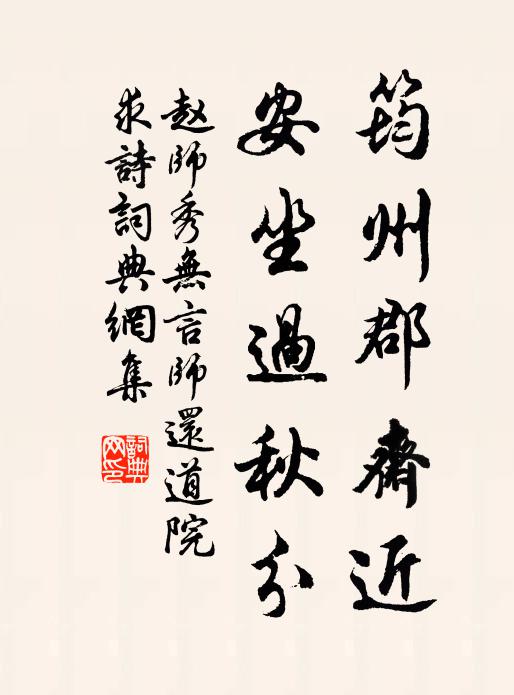 筠州郡齋近
安坐過秋分
赵師秀無言師還道院
求詩詞典網集
詞典網印